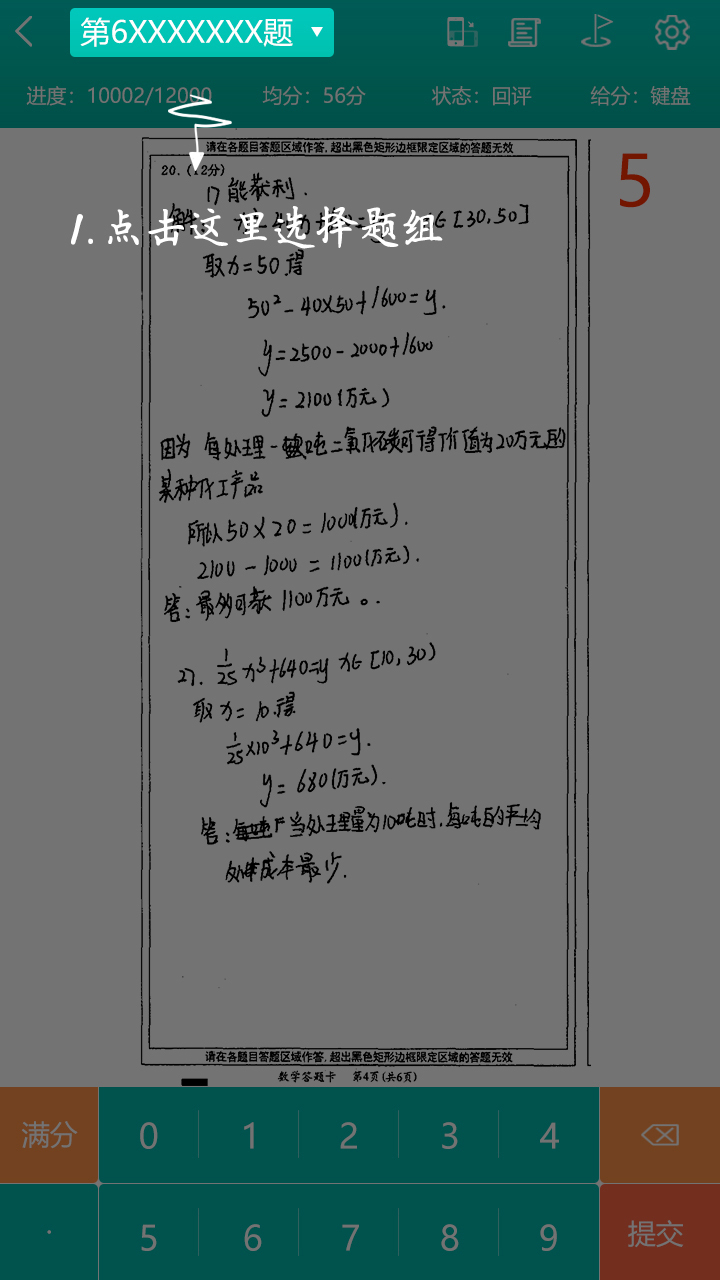 第6XXXXXXX题
进度：10002/12000 均分：56分 状态：回评 给分：键盘
请在各题目答题区域作答，超出黑色矩形边框限定区域的答题无效
5
20．(12分)
1) 能获利．
1.点击这里选择题组
∈[30,50]
取x=50得
50²-40×50+1600=y．
y=2500-2000+1600
y=2100(万元)
因为 每处理一吨二氧化碳可得价值为20万元的
某种化工产品
所以50×20=1000(万元)．
2100-1000=1100(万元)．
答：最多可获1100万元。．
27. 1/25x³+640=y x∈[10,30)
取x=10得
1/25×10³+640=y．
y=680(万元)．
答：当处理量为10吨时，每吨的平均
成本最少．
请在各题目答题区域作答，超出黑色矩形边框限定区域的答题无效
数学答题卡 第4页(共6页)
满分 0 1 2 3 4
. 5 6 7 8 9 提交